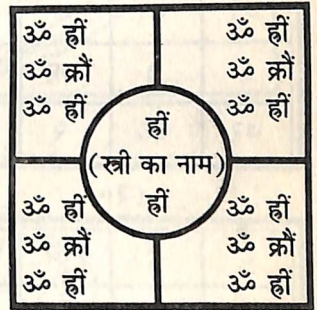 ॐ ह्रीं
ॐ क्रौं
ॐ ह्रीं
ॐ ह्रीं
ॐ क्रौं
ॐ ह्रीं
ह्रीं
(स्त्री का नाम)
ह्रीं
ॐ ह्रीं
ॐ क्रौं
ॐ ह्रीं
ॐ ह्रीं
ॐ क्रौं
ॐ ह्रीं